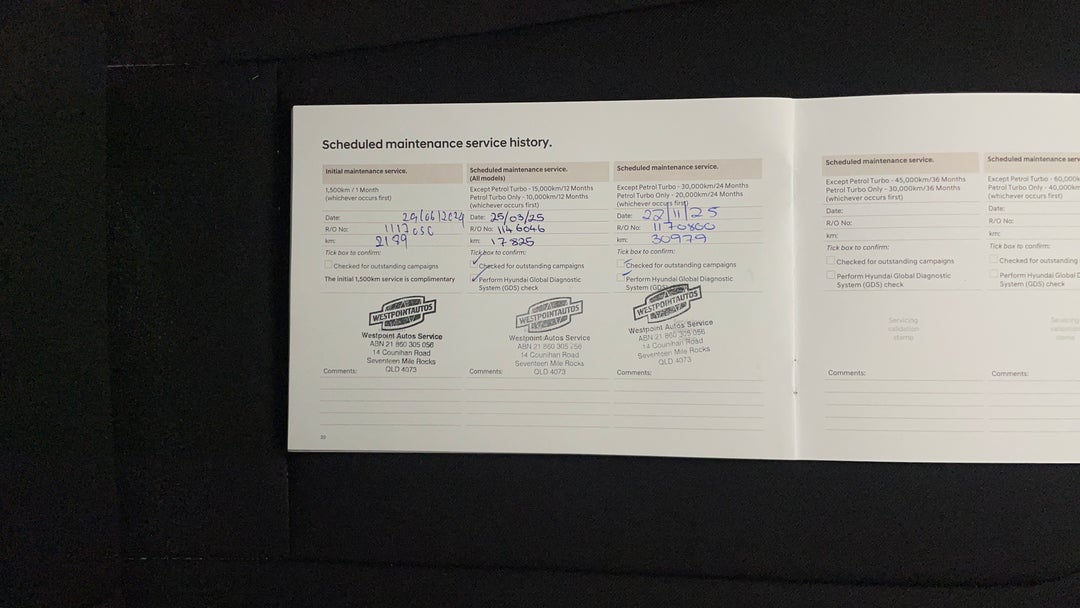 Scheduled maintenance service history.
Initial maintenance service.
1,500km / 1 Month
(whichever occurs first)
Date: 29/06/2024
R/O No: 1117050
km: 2199
Tick box to confirm:
Checked for outstanding campaigns
The initial 1,500km service is complimentary
WESTPOINTAUTOS
Westpoint Autos Service
ABN 21 860 305 056
14 Counihan Road
Seventeen Mile Rocks
QLD 4073
Comments:
Scheduled maintenance service.
(All models)
Except Petrol Turbo - 15,000km/12 Months
Petrol Turbo Only - 10,000km/12 Months
(whichever occurs first)
Date: 25/03/25
R/O No: 1146046
km: 17825
Tick box to confirm:
Checked for outstanding campaigns
Perform Hyundai Global Diagnostic
System (GDS) check
WESTPOINTAUTOS
Westpoint Autos Service
ABN 21 860 305 056
14 Counihan Road
Seventeen Mile Rocks
QLD 4073
Comments:
Scheduled maintenance service.
Except Petrol Turbo - 30,000km/24 Months
Petrol Turbo Only - 20,000km/24 Months
(whichever occurs first)
Date: 22/11/25
R/O No: 1170800
km: 30979
Tick box to confirm:
Checked for outstanding campaigns
Perform Hyundai Global Diagnostic
System (GDS)
WESTPOINTAUTOS
Westpoint Autos Service
ABN 21 860 305 056
14 Counihan Road
Seventeen Mile Rocks
QLD 4073
Comments:
Scheduled maintenance service.
Except Petrol Turbo - 45,000km/36 Months
Petrol Turbo Only - 30,000km/36 Months
(whichever occurs first)
Date:
R/O No:
km:
Tick box to confirm:
Checked for outstanding campaigns
Perform Hyundai Global Diagnostic
System (GDS) check
Servicing
validation
stamp
Comments:
Scheduled maintenance serv
Except Petrol Turbo - 60,000k
Petrol Turbo Only - 40,000km
(whichever occurs first)
Date:
R/O No:
km:
Tick box to confirm:
Checked for outstanding
Perform Hyundai Global
System (GDS) check
Servicing
validation
stamp
Comments: